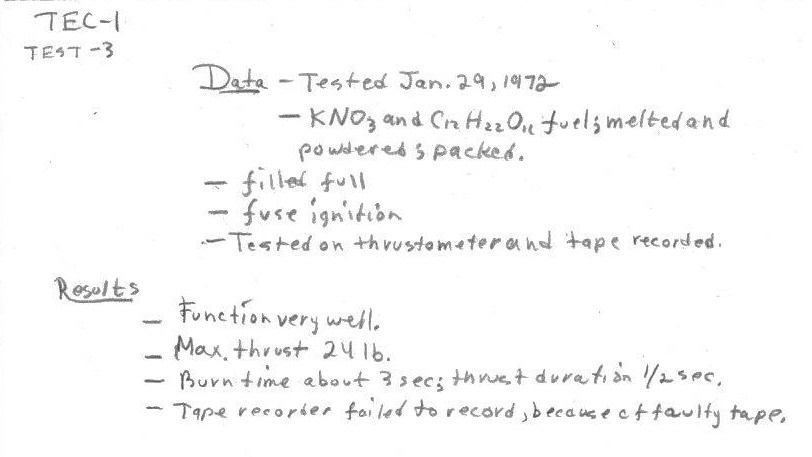 TEC-1
TEST-3
Data - Tested Jan. 29, 1972
- KNO3 and C12H22O11 fuel; melted and
powdered; packed.
- filled full
- fuse ignition
- Tested on thrustometer and tape recorded.
Results
- Function very well.
- Max. thrust 24 lb.
- Burn time about 3 sec; thrust duration 1/2 sec.
- Tape recorder failed to record, because of faulty tape.